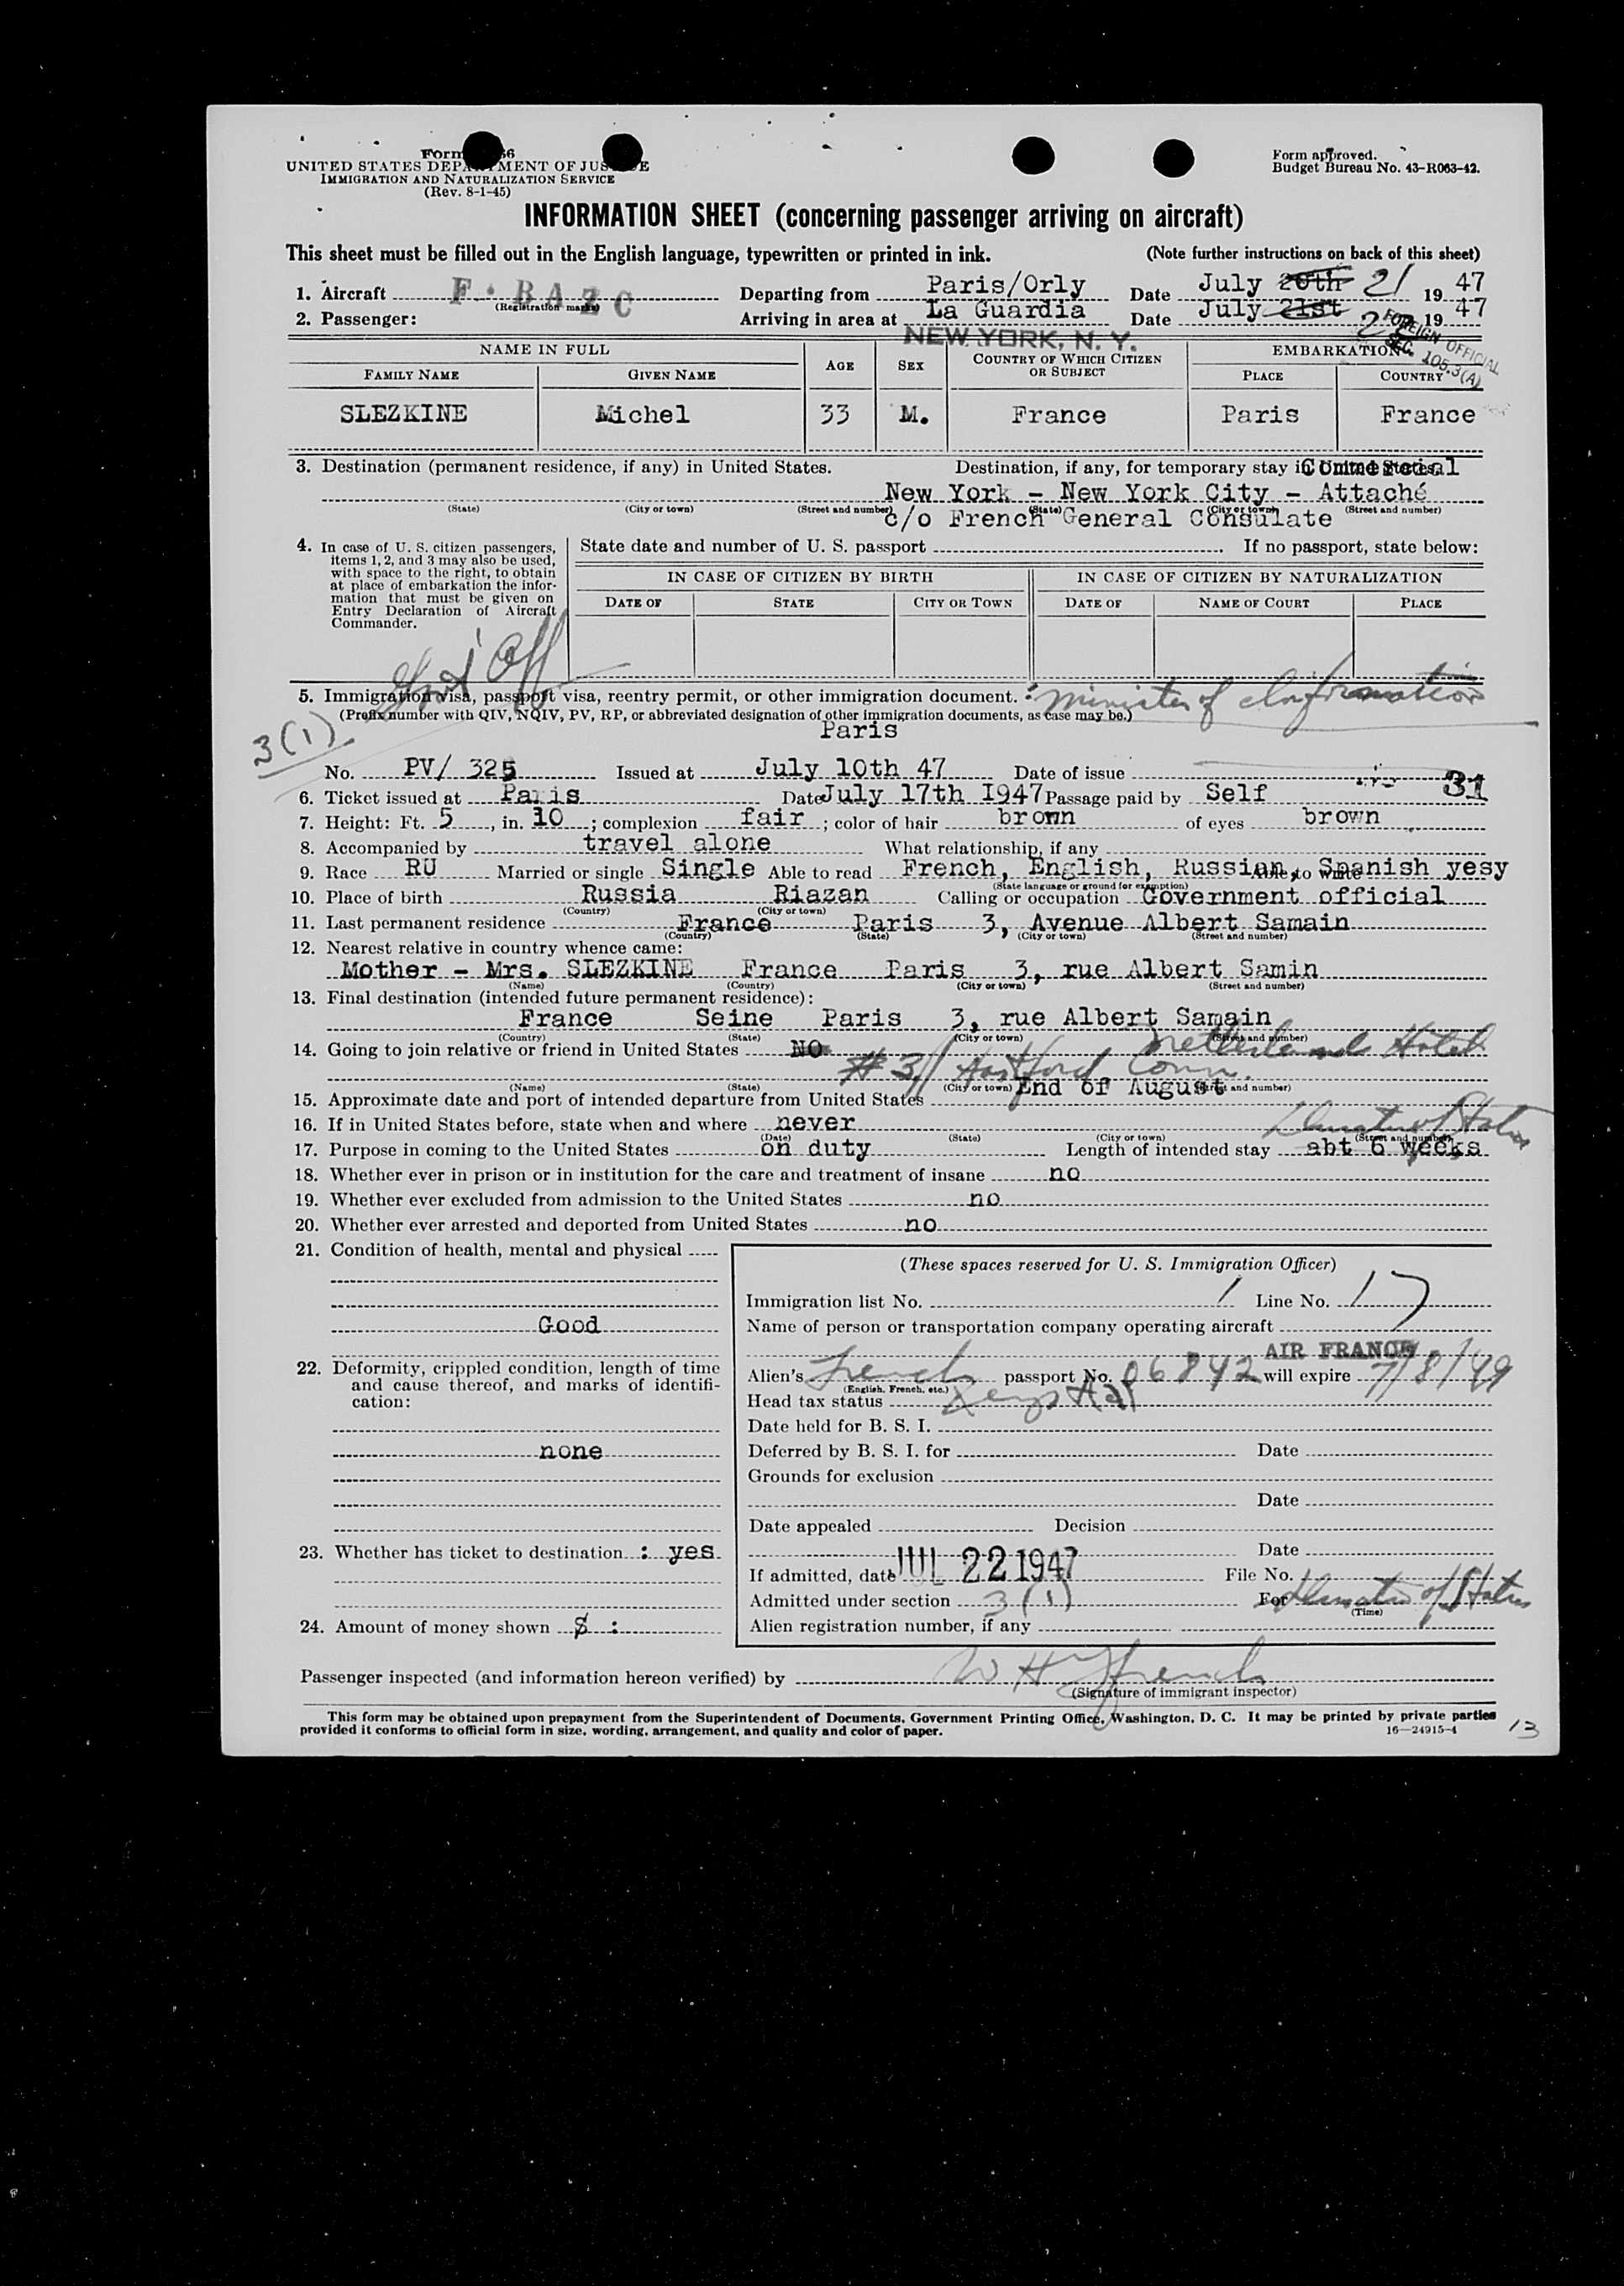 UNITED STATES DEPARTMENT OF JUSTICE
IMMIGRATION AND NATURALIZATION SERVICE
(Rev. 8-1-45)
Form approved.
Budget Bureau No. 43-R063-42.
INFORMATION SHEET (concerning passenger arriving on aircraft)
This sheet must be filled out in the English language, typewritten or printed in ink. (Note further instructions on back of this sheet)
1. Aircraft F · BAZC Departing from Paris/Orly Date July 20th 21 1947
(Registration marks)
2. Passenger: Arriving in area at La Guardia Date July 21st 22 1947
NEW YORK, N. Y.
FOREIGN OFFICIAL
SEC. 105.3(A)
NAME IN FULL AGE SEX COUNTRY OF WHICH CITIZEN OR SUBJECT EMBARKATION
FAMILY NAME GIVEN NAME PLACE COUNTRY
SLEZKINE Michel 33 M. France Paris France
3. Destination (permanent residence, if any) in United States. Destination, if any, for temporary stay in United States. Commercial
New York - New York City - Attaché
(State) (City or town) (Street and number) (State) (City or town) (Street and number)
c/o French General Consulate
4. In case of U. S. citizen passengers,
items 1, 2, and 3 may also be used,
with space to the right, to obtain
at place of embarkation the infor-
mation that must be given on
Entry Declaration of Aircraft
Commander.
State date and number of U. S. passport If no passport, state below:
IN CASE OF CITIZEN BY BIRTH IN CASE OF CITIZEN BY NATURALIZATION
DATE OF STATE CITY OR TOWN DATE OF NAME OF COURT PLACE
Govt Off
5. Immigration visa, passport visa, reentry permit, or other immigration document. Minister of Information
(Prefix number with QIV, NQIV, PV, RP, or abbreviated designation of other immigration documents, as case may be.)
3(1)
Paris
No. PV/ 325 Issued at July 10th 47 Date of issue
31
6. Ticket issued at Paris Date July 17th 1947 Passage paid by Self
7. Height: Ft. 5, in. 10; complexion fair; color of hair brown of eyes brown
8. Accompanied by travel alone What relationship, if any
9. Race RU Married or single Single Able to read French, English, Russian, Spanish yesy Able to write
(State language or ground for exemption)
10. Place of birth Russia Riazan Calling or occupation Government official
(Country) (City or town)
11. Last permanent residence France Paris 3, Avenue Albert Samain
(Country) (State) (City or town) (Street and number)
12. Nearest relative in country whence came:
Mother - Mrs. SLEZKINE France Paris 3, rue Albert Samin
(Name) (Country) (City or town) (Street and number)
13. Final destination (intended future permanent residence):
France Seine Paris 3, rue Albert Samain
(Country) (State) (City or town) (Street and number)
14. Going to join relative or friend in United States NO Hotel
#3/ Hartford Conn.
(Name) (State) (City or town) (Street and number)
15. Approximate date and port of intended departure from United States End of August
16. If in United States before, state when and where never
(Date) (State) (City or town) (Street and number)
Duration of Status
17. Purpose in coming to the United States on duty Length of intended stay abt 6 weeks
18. Whether ever in prison or in institution for the care and treatment of insane no
19. Whether ever excluded from admission to the United States no
20. Whether ever arrested and deported from United States no
21. Condition of health, mental and physical
Good
22. Deformity, crippled condition, length of time
and cause thereof, and marks of identifi-
cation:
none
23. Whether has ticket to destination : yes
24. Amount of money shown $ :
(These spaces reserved for U. S. Immigration Officer)
Immigration list No. 1 Line No. 17
Name of person or transportation company operating aircraft
AIR FRANCE
Alien's French passport No. 06842 will expire 7/8/49
(English, French, etc.)
Head tax status
Date held for B. S. I.
Deferred by B. S. I. for Date
Grounds for exclusion
Date
Date appealed Decision
Date
If admitted, date JUL 22 1947 File No.
Admitted under section 3(1) For Duration of Status
(Time)
Alien registration number, if any
Passenger inspected (and information hereon verified) by W H French
(Signature of immigrant inspector)
This form may be obtained upon prepayment from the Superintendent of Documents, Government Printing Office, Washington, D. C. It may be printed by private parties
provided it conforms to official form in size, wording, arrangement, and quality and color of paper. 16—24915-4
13